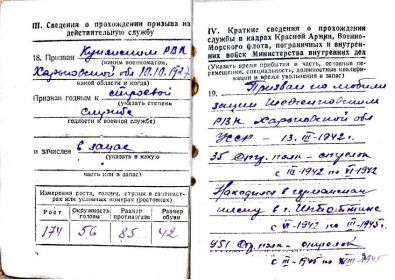 III. Сведения о прохождении призыва на
действительную службу
18. Признан Купянским РВК
(каким военкоматом,
Харьковской обл 10.10.1927
какой области и когда)
Признан годным к строевой
(указать степень
службе
годности к военной службе)
и зачислен в запас
(указать в какую
часть или в запас)
Измерения роста, головы, ступни в сантимет-
рах или условных номерах (ростовках)
Рост
Окружность головы
Размер противогаза
Размер обуви
174 56 85 42
IV. Краткие сведения о прохождении
службы в кадрах Красной Армии, Военно-
Морского флота, пограничных и внутрен-
них войск Министерства внутренних дел
(Указать время прибытия в часть, основные пе-
ремещения, специальность, должностные квалифи-
кации и время увольнения в запас)
19. Призван по мобили
зации
РВК Харьковской обл
УССР - 13.III-1942г.
35 Отд. полк - стрелок
с III-1942 по VI-1942
Находился в германском
плену в г. Штеттине
с VI-1942 по III-1945г.
951 Отд. полк - стрелок
с III-1945 по 1945